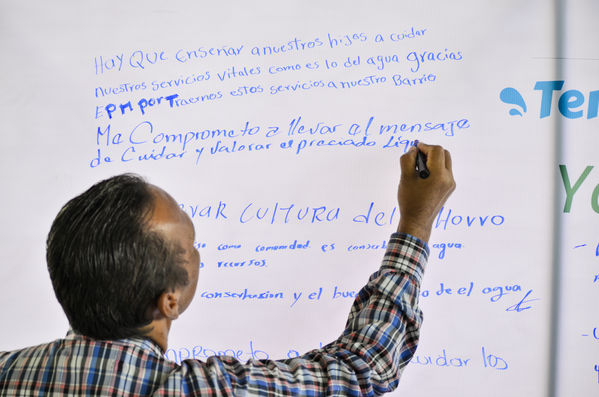 HAY QUE ENSEÑAR a nuestros hijos a cuidar
nuestros servicios vitales como es lo del agua gracias
EPM por Traernos estos servicios a nuestro Barrio
Me Comprometo a llevar al mensaje
de Cuidar y valorar el preciado Liqu
VAR CULTURA del AHorro
so como comunidad es agua
recursos
y el bue o de el agua
Comprometo a cuidar los
Ter
Yo